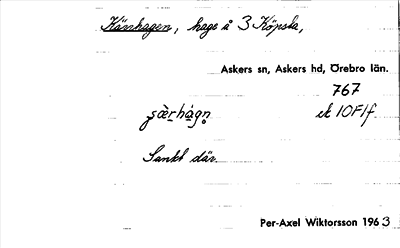 Känhagen, hage å 3 Köpsta,
Askers sn, Askers hd, Örebro län.
767
ek 10F1f
Sankt där
Per-Axel Wiktorsson 1963